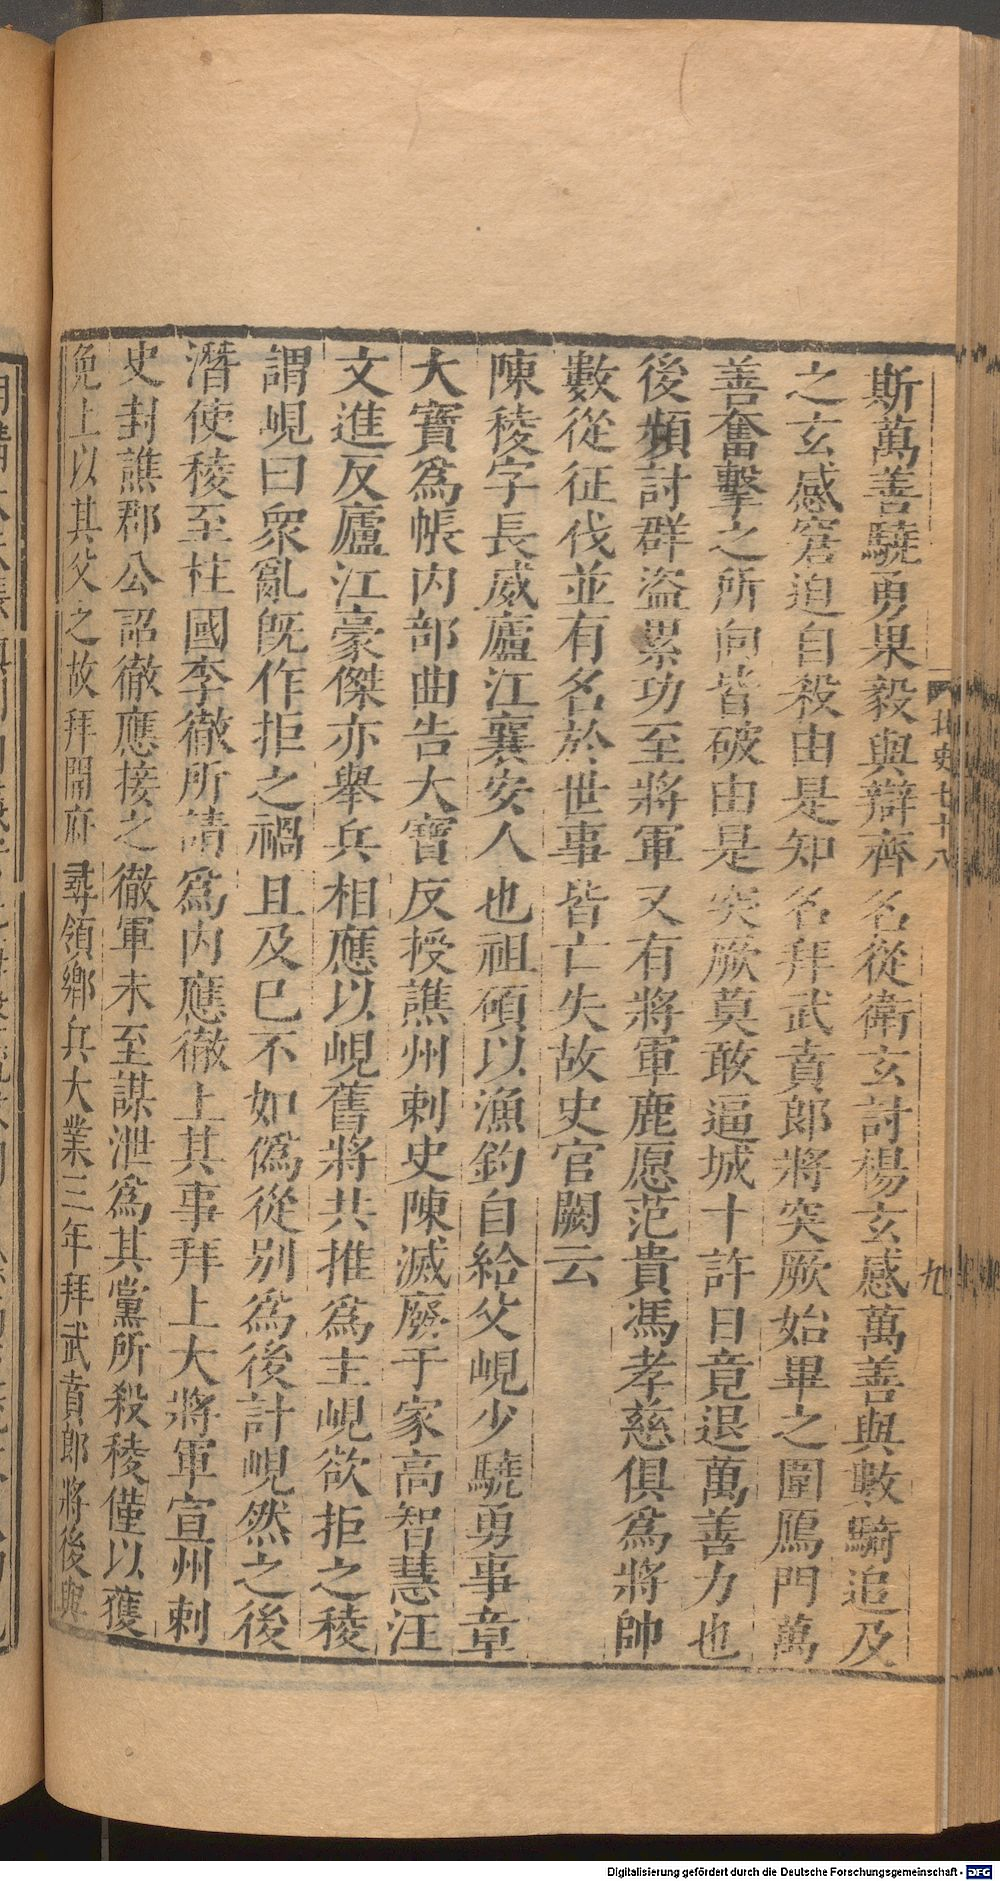 斯萬善驍勇果毅與辯齊名從衛玄討楊玄感萬善與數騎追及
之玄感窘迫自殺由是知名拜武賁郎將突厥始畢之圍鴈門萬
善奮擊之所向皆破由是突厥莫敢逼城十許日竟退萬善力也
後頻討群盜累功至將軍又有將軍鹿愿范貴馮孝慈俱爲將帥
數從征伐並有名於世事皆亡失故史官闕云
陳稜字長威廬江襄安人也祖碩以漁釣自給父峴少驍勇事章
大寶爲帳內部曲告大寶反授譙州刺史陳滅廢于家高智慧汪
文進反廬江豪傑亦舉兵相應以峴舊將共推爲主峴欲拒之稜
謂峴曰衆亂既作拒之禍且及已不如僞從別爲後計峴然之後
潛使稜至柱國李徹所請爲內應徹上其事拜上大將軍宣州刺
史封譙郡公詔徹應接之徹軍未至謀泄爲其黨所殺稜僅以獲
免上以其父之故拜開府尋領鄉兵大業三年拜武賁郎將後與
北史七十八
九
Digitalisierung gefördert durch die Deutsche Forschungsgemeinschaft - DFG